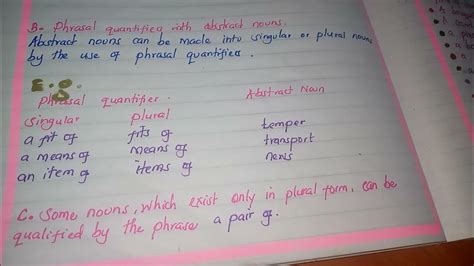 B- Phrasal quantifies with abstract nouns.
Abstract nouns can be made into singular or plural nouns
by the use of phrasal quantifiers.
E.g.
Phrasal quantifier. Abstract Noun
Singular plural
a fit of fits of temper
a means of means of transport
an item of items of news
C. Some nouns, which exist only in plural form, can be
qualified by the phrase a pair of.